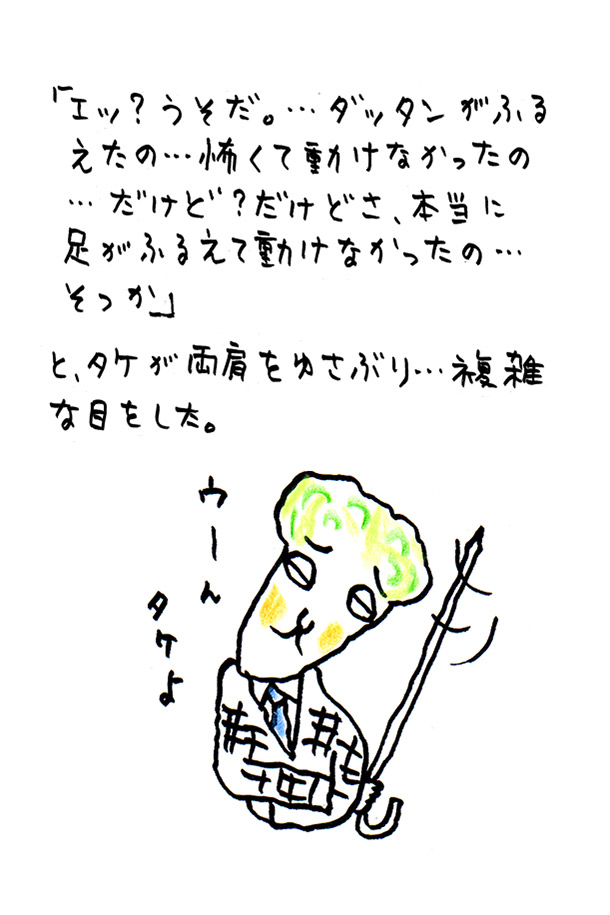 「エッ?うそだ。…ダッタンがふる
えたの…怖くて動けなかったの
…だけど?だけどさ、本当に
足がふるえて動けなかったの…
そっか」
と、タケが両肩をゆさぶり…複雑
な目をした。
ウーん
タケよ